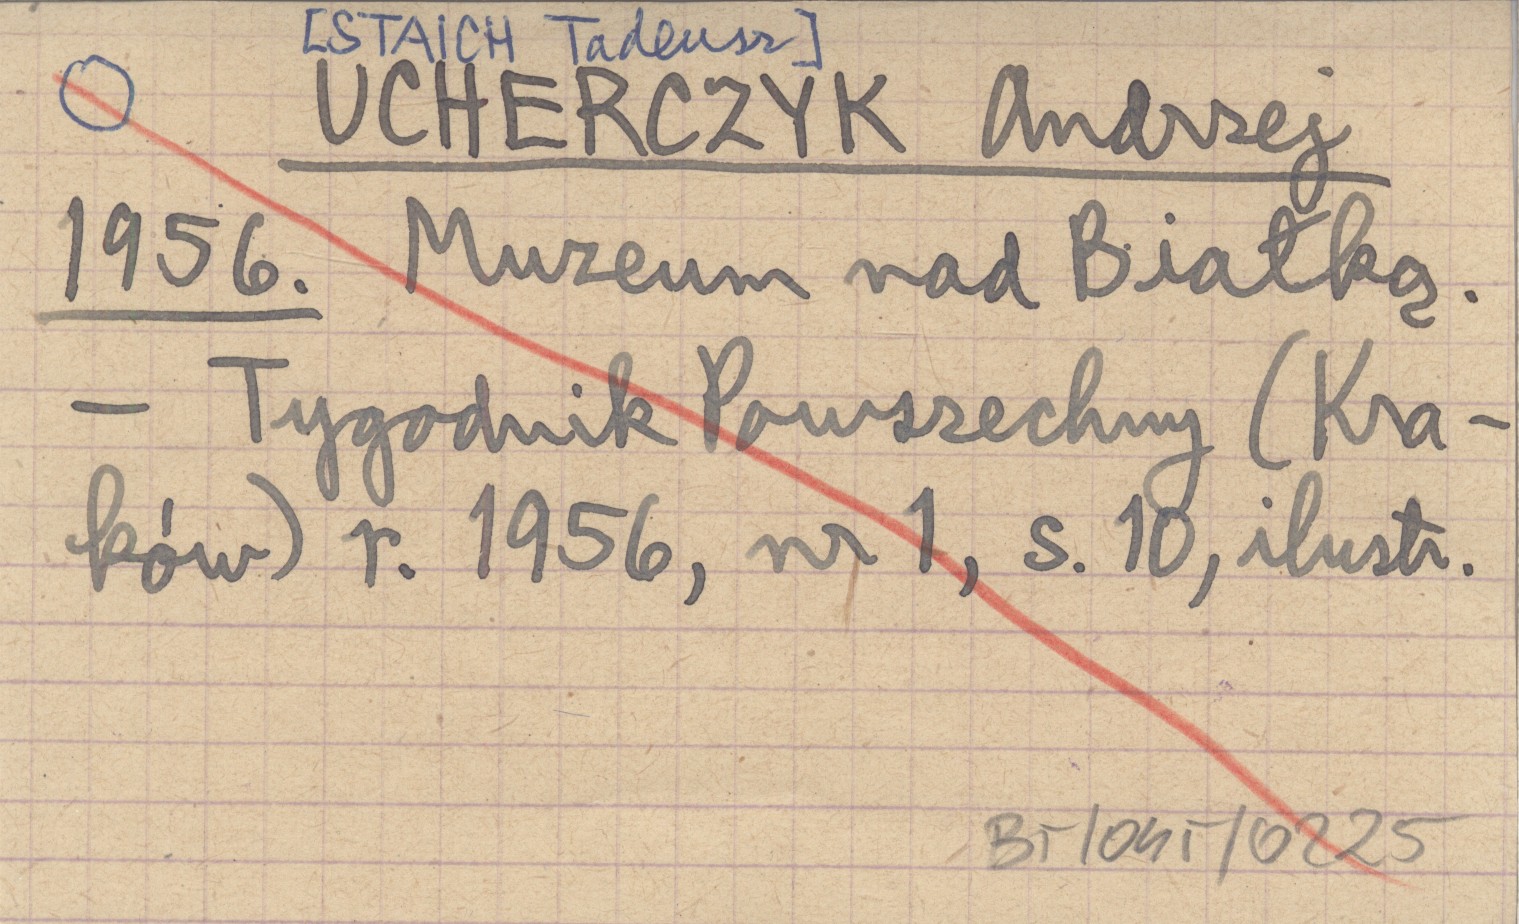 [STAICH Tadeusz]
UCHERCZYK Andrzej
1956. Muzeum nad Białką.
— Tygodnik Powszechny (Kra-
ków) r. 1956, nr 1, s. 10, ilustr.
0225